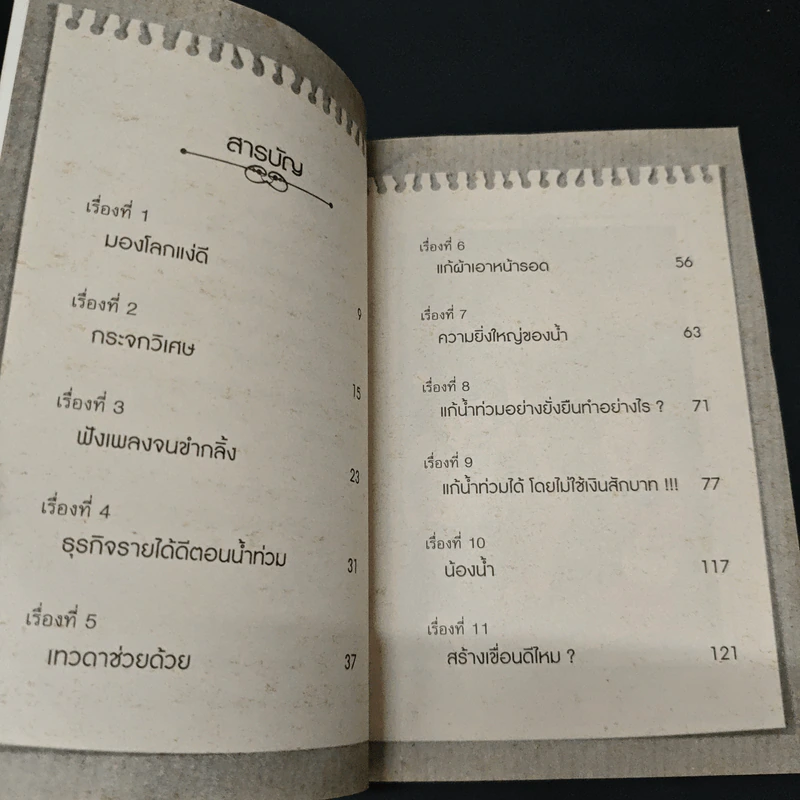 สารบัญ
เรื่องที่ 1
มองโลกแง่ดี 9
เรื่องที่ 2
กระจกวิเศษ 15
เรื่องที่ 3
ฟังเพลงจนขำกลิ้ง 23
เรื่องที่ 4
ธุรกิจรายได้ดีตอนน้ำท่วม 31
เรื่องที่ 5
เทวดาช่วยด้วย 37
เรื่องที่ 6
แก้ผ้าเอาหน้ารอด 56
เรื่องที่ 7
ความยิ่งใหญ่ของน้ำ 63
เรื่องที่ 8
แก้น้ำท่วมอย่างยั่งยืนทำอย่างไร ? 71
เรื่องที่ 9
แก้น้ำท่วมได้ โดยไม่ใช้เงินสักบาท !!! 77
เรื่องที่ 10
น้องน้ำ 117
เรื่องที่ 11
สร้างเขื่อนดีไหม ? 121